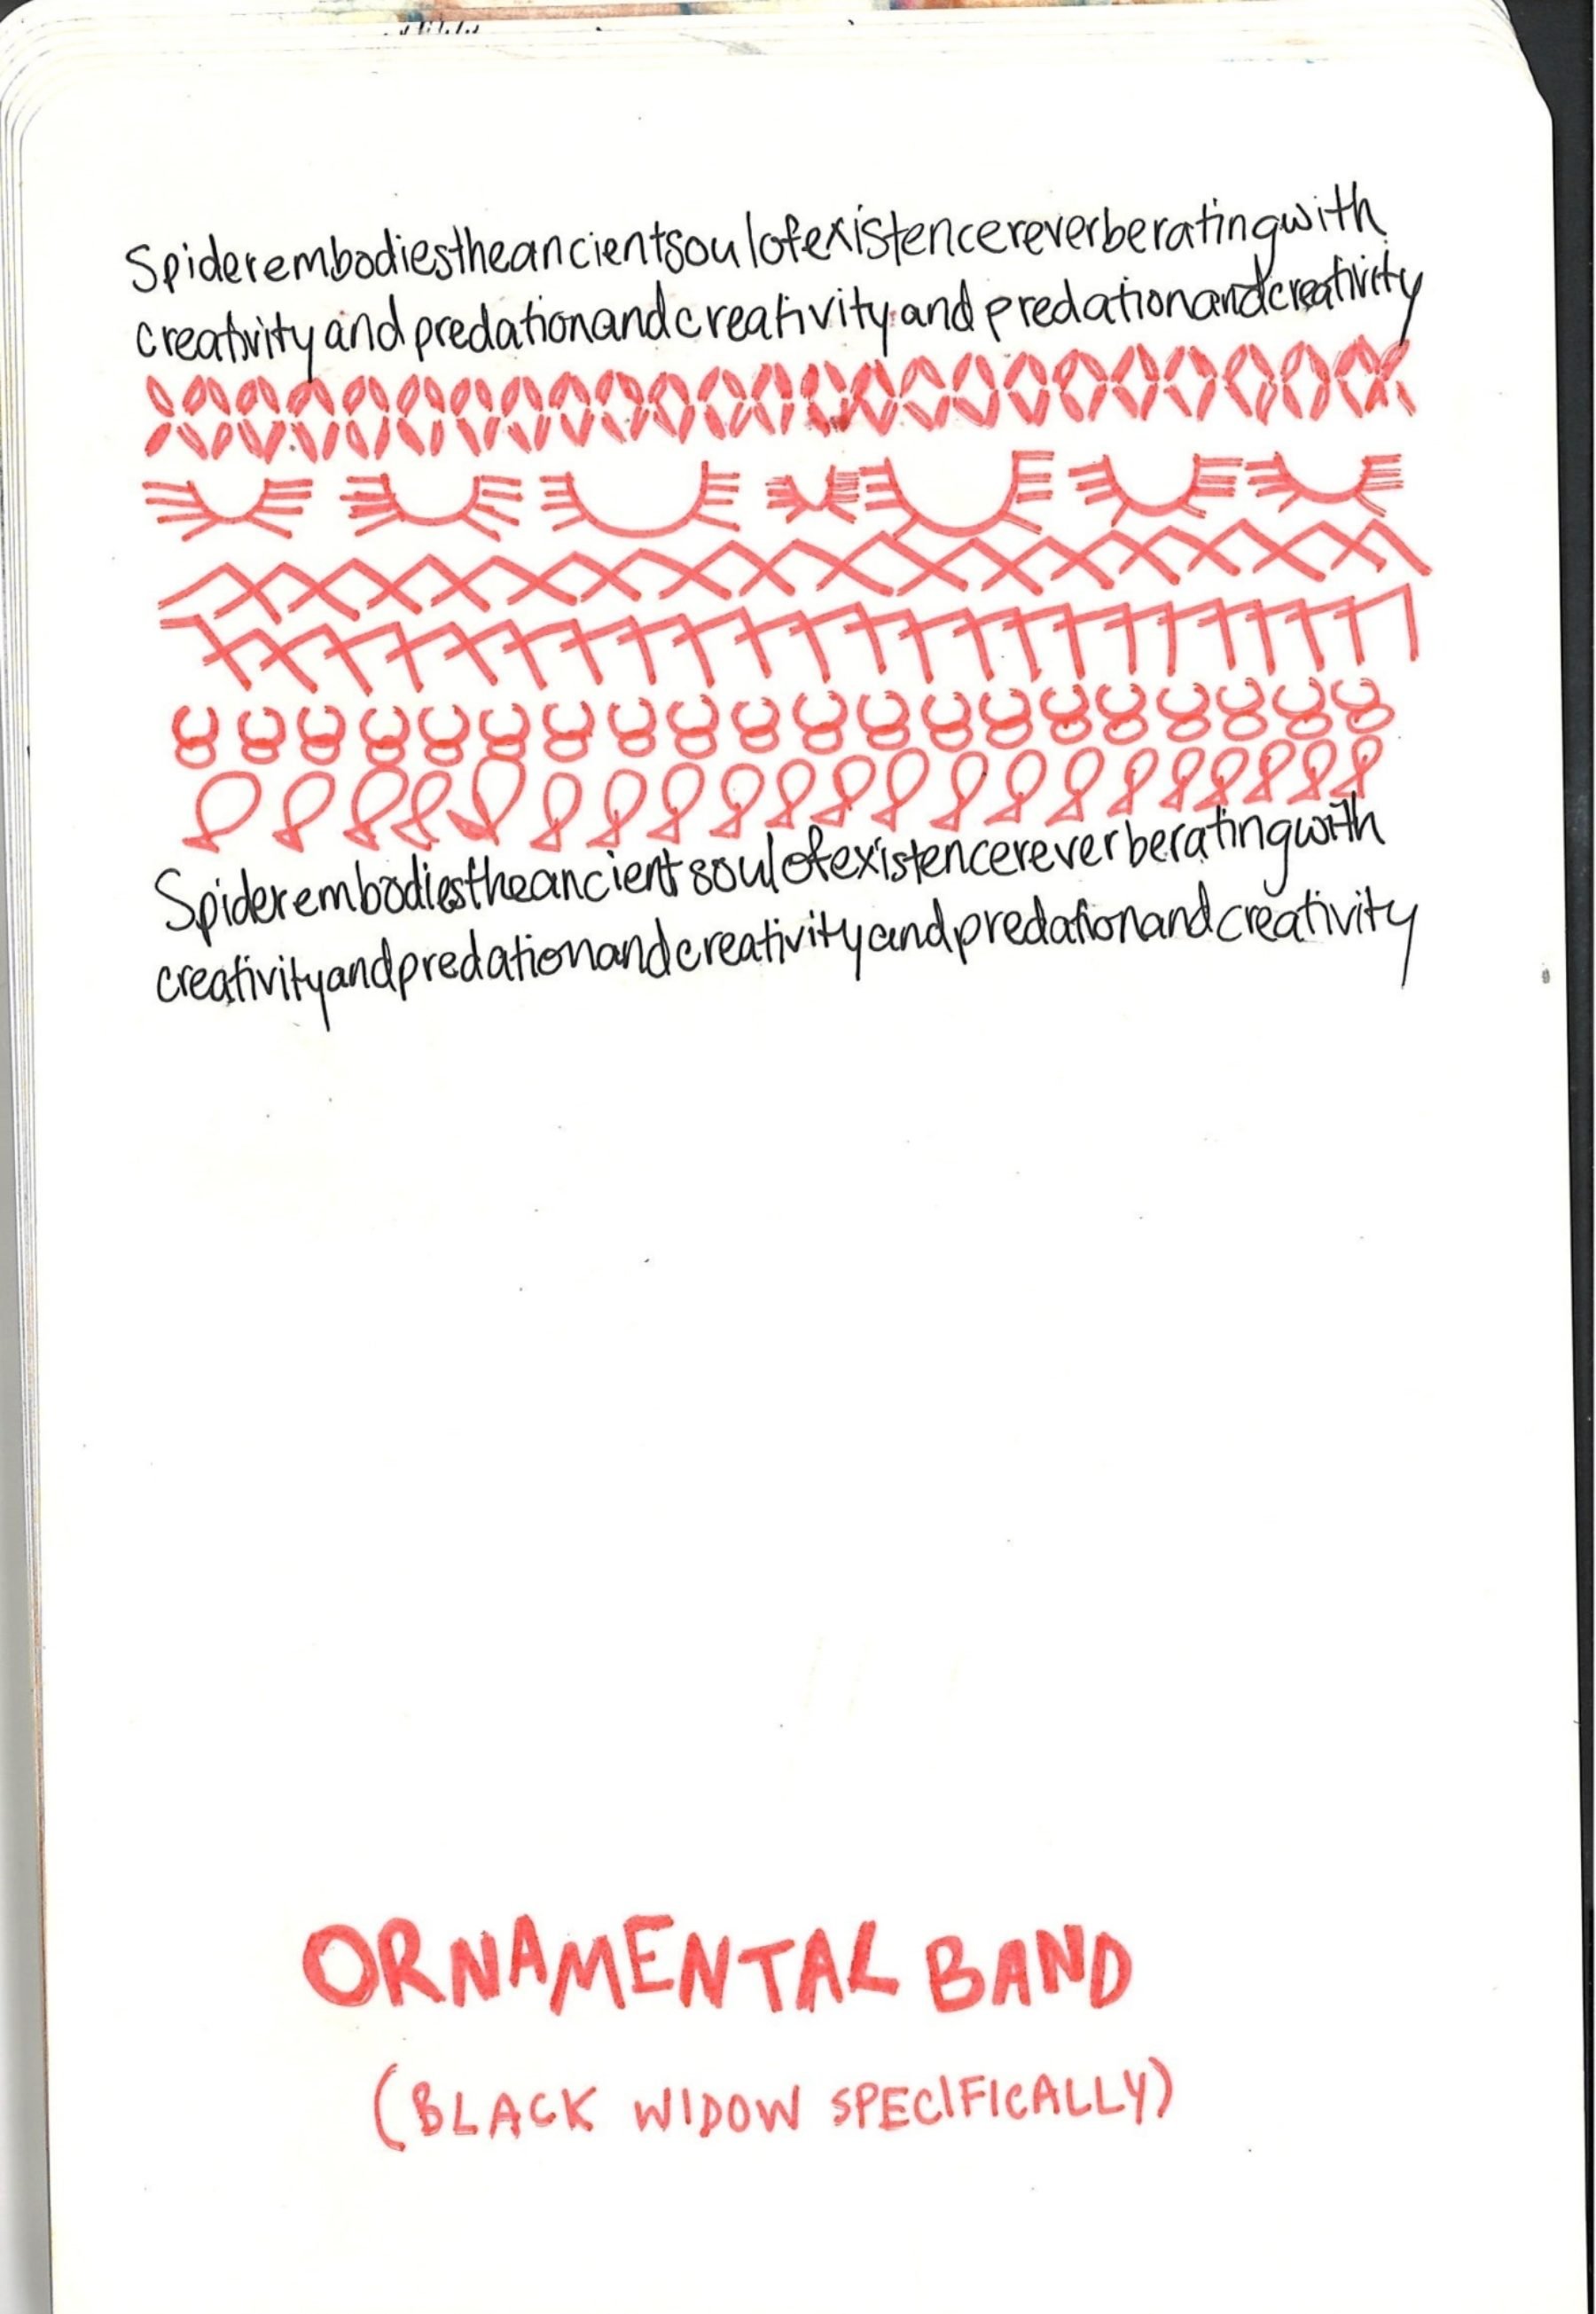 Spiderembodiestheancientsoulofexistencereverberatingwith
creativityandpredationandcreativityandpredationandcreativity
Spiderembodiestheancientsoulofexistencereverberatingwith
creativityandpredationandcreativityandpredationandcreativity
ORNAMENTAL BAND
(BLACK WIDOW SPECIFICALLY)